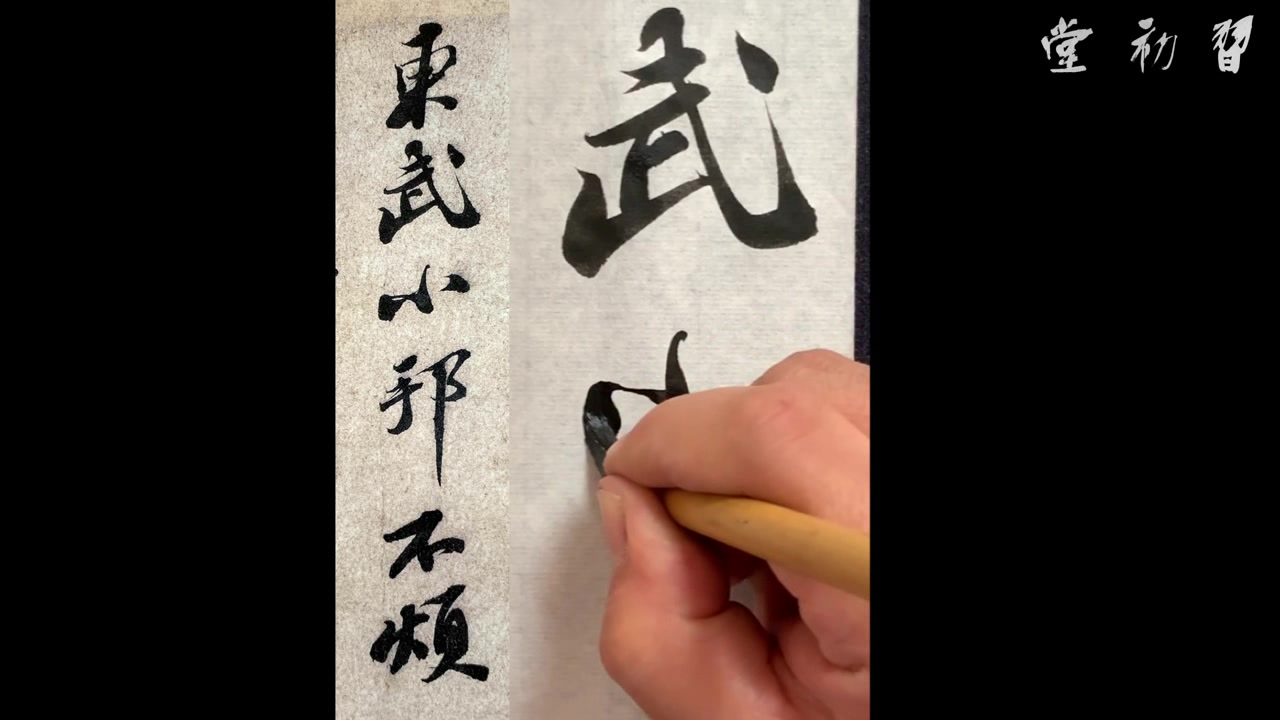 東武小邦不煩
武小
習初堂